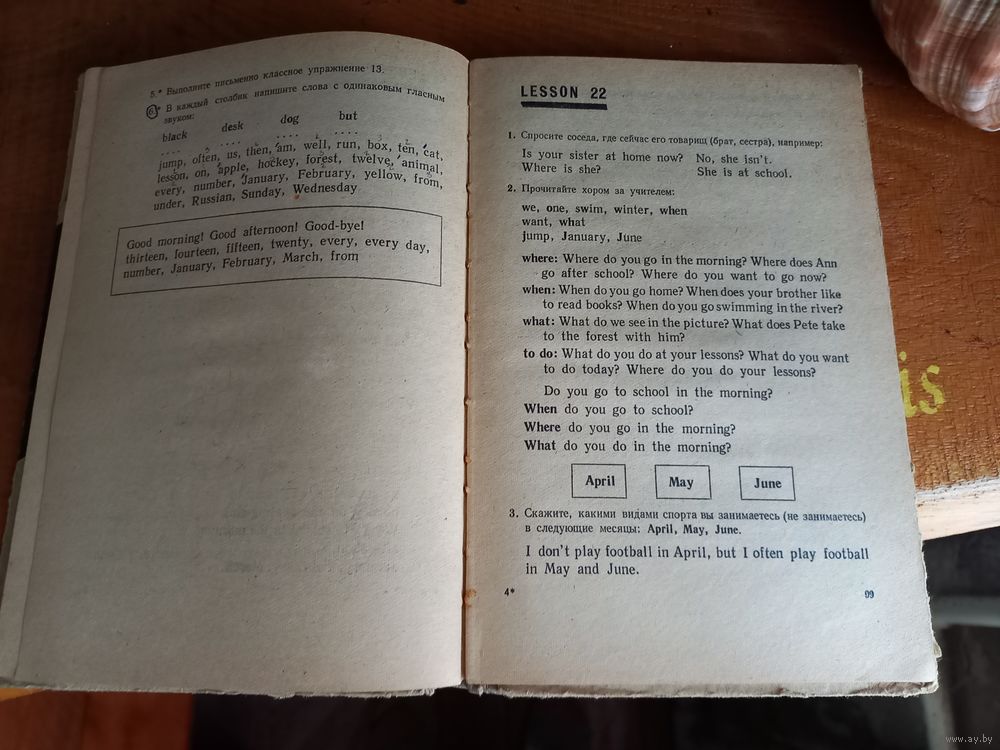 5.* Выполните письменно классное упражнение 13.
6.* В каждый столбик напишите слова с одинаковым гласным
звуком:
black desk dog but
.... .... .... ....
jump, often, us, then, am, well, run, box, ten, cat,
lesson, on, apple, hockey, forest, twelve, animal,
every, number, January, February, yellow, from,
under, Russian, Sunday, Wednesday
Good morning! Good afternoon! Good-bye!
thirteen, fourteen, fifteen, twenty, every, every day,
number, January, February, March, from
LESSON 22
1. Спросите соседа, где сейчас его товарищ (брат, сестра), например:
Is your sister at home now? No, she isn't.
Where is she? She is at school.
2. Прочитайте хором за учителем:
we, one, swim, winter, when
want, what
jump, January, June
where: Where do you go in the morning? Where does Ann
go after school? Where do you want to go now?
when: When do you go home? When does your brother like
to read books? When do you go swimming in the river?
what: What do we see in the picture? What does Pete take
to the forest with him?
to do: What do you do at your lessons? What do you want
to do today? Where do you do your lessons?
Do you go to school in the morning?
When do you go to school?
Where do you go in the morning?
What do you do in the morning?
April May June
3. Скажите, какими видами спорта вы занимаетесь (не занимаетесь)
в следующие месяцы: April, May, June.
I don't play football in April, but I often play football
in May and June.
4* 99
is
www.ay.by